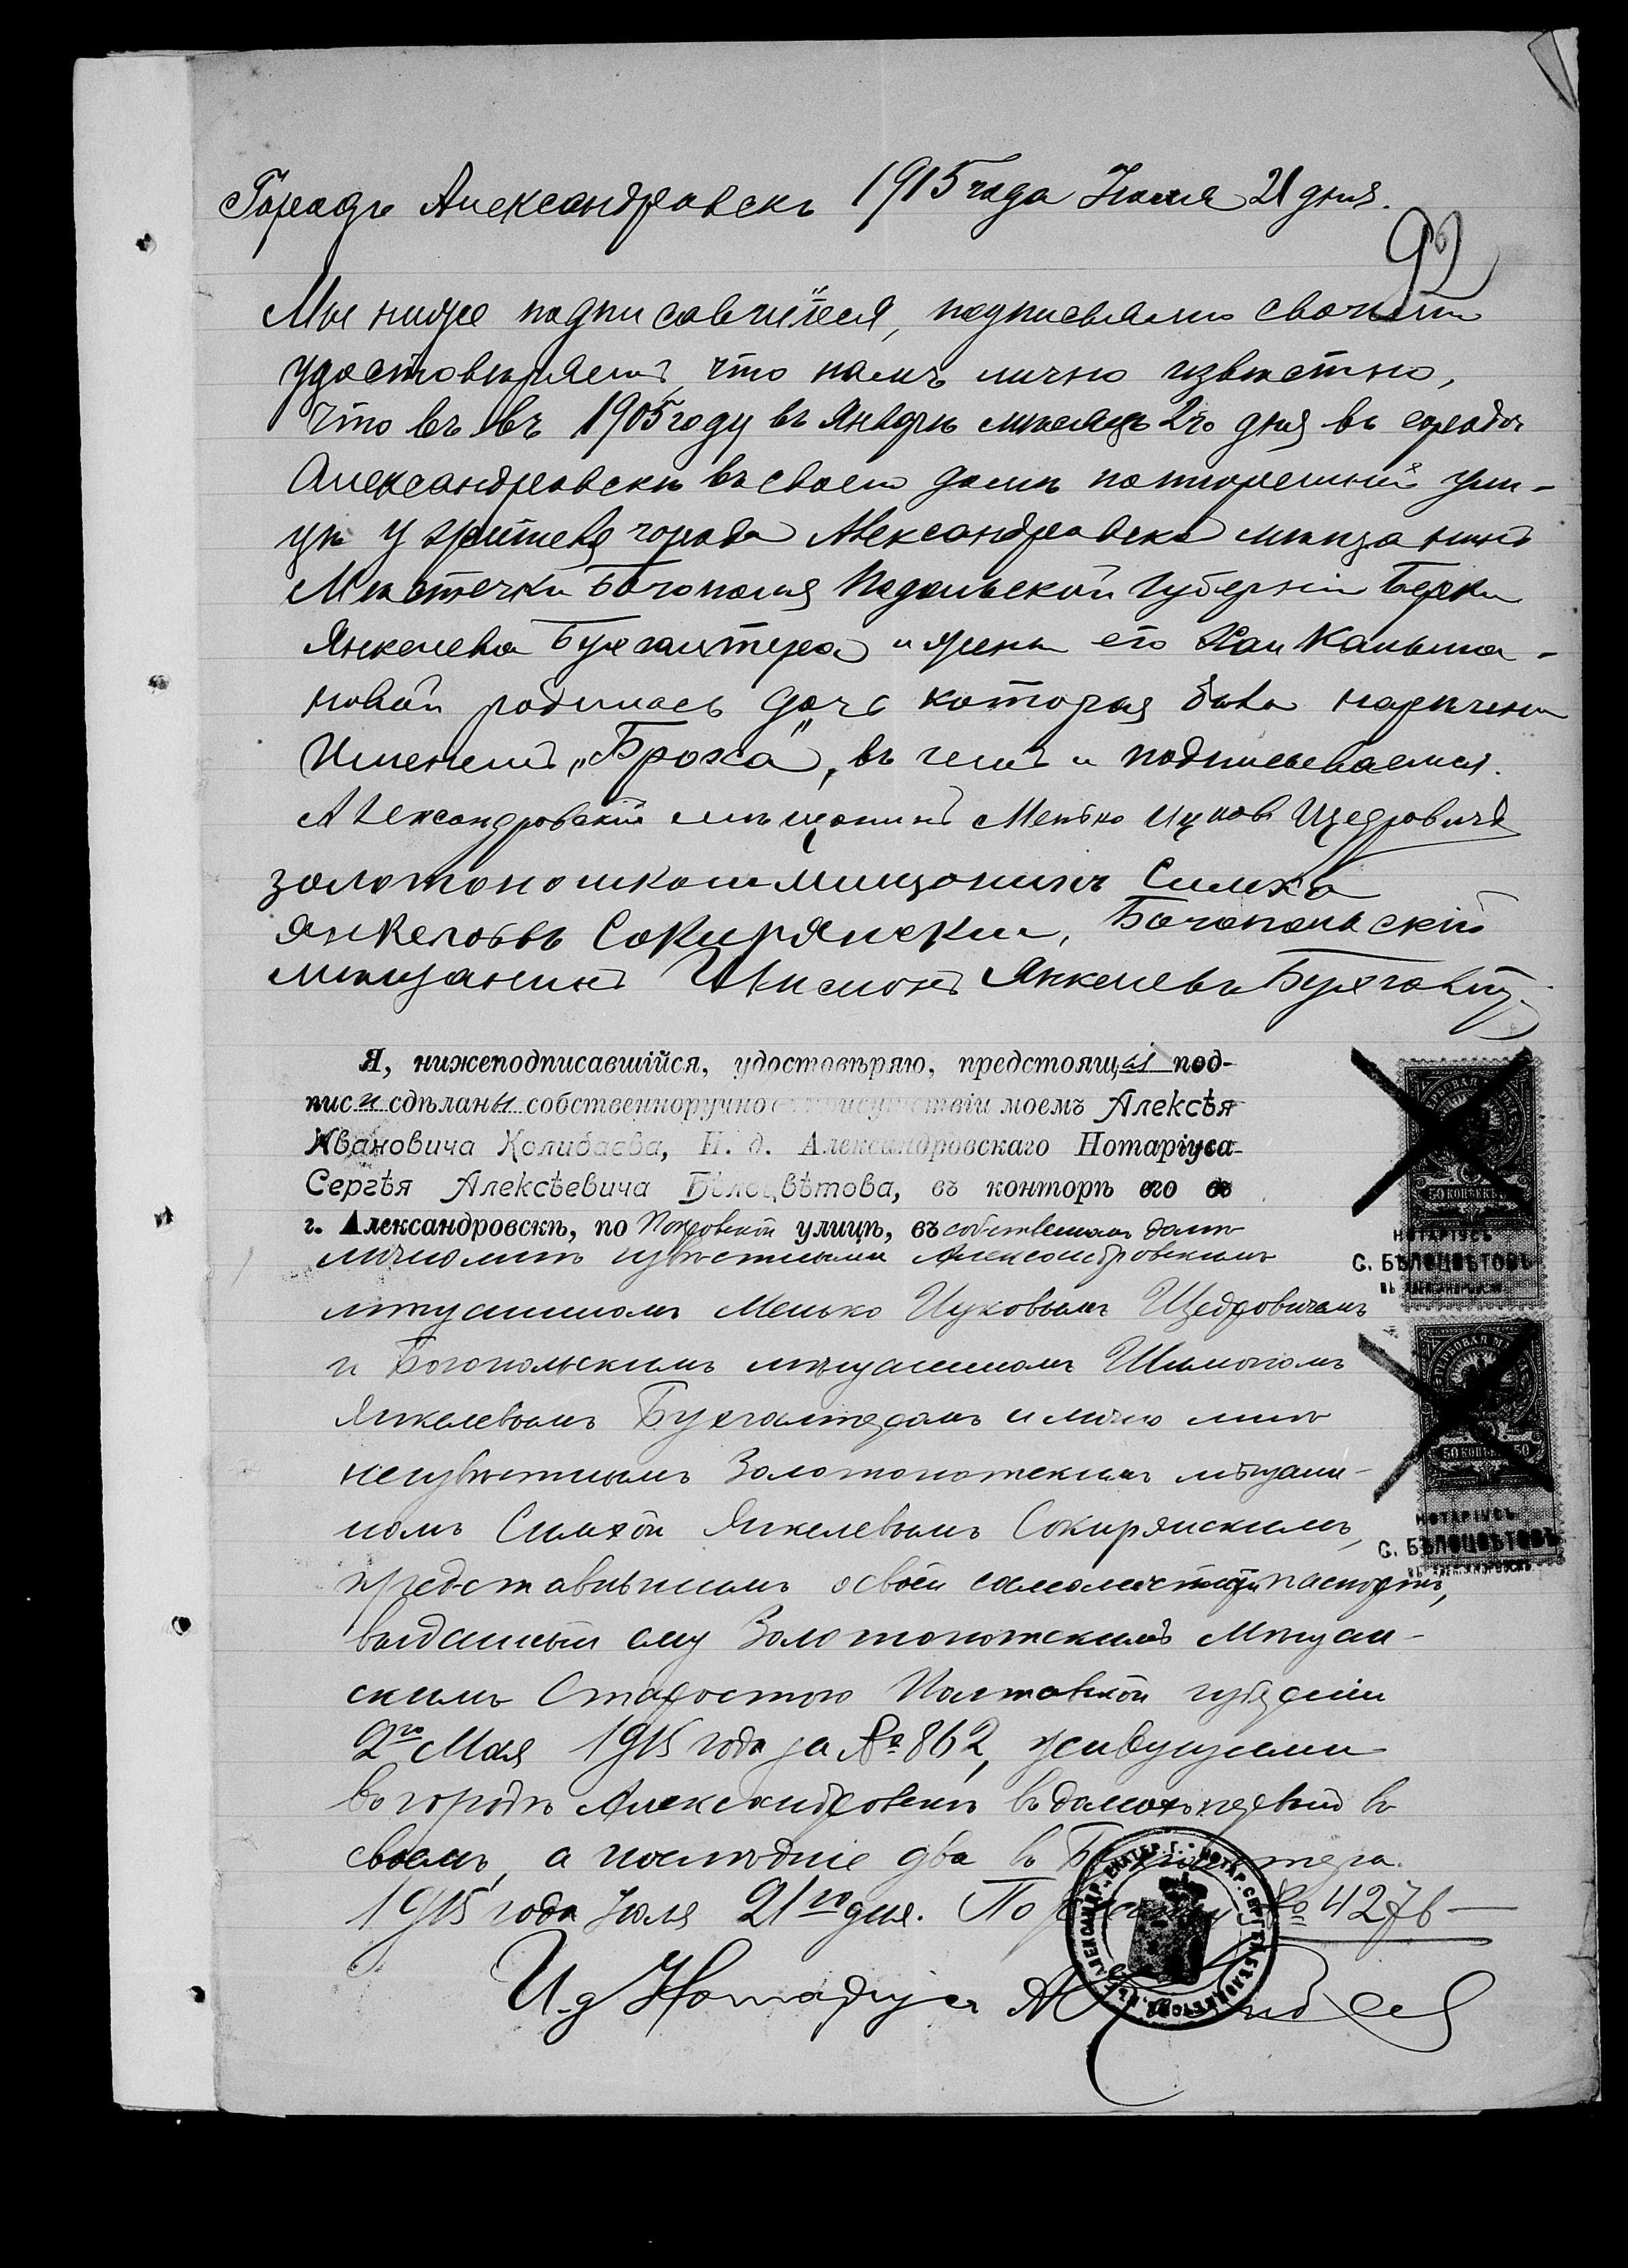 Городъ Александровскъ 1915 года Іюля 21 дня.
92
Мы ниже подписавшіеся, подписями своими
удостовѣряемъ, что намъ лично извѣстно,
что въ въ 1905 году въ Январѣ мѣсяцѣ 2го дня въ городѣ
Александровскѣ въ своем домѣ на тюремній ули-
цѣ у жителя города Александровска мѣщанина
Мѣстечки Богополя Подольской губерніи Берки
Янкелева Бухгалтера и жены его Хаи Кальма-
новой родилась дочь которая была наречена
Именемъ „Броха", въ чемъ и подписываемся.
Александровскій мѣщанинъ Менько Ицков Щедровичъ
золотоношкои мищонинъ Симха
Янкеловъ Сокирянски, Богопольскій
мѣщанинъ Шимонъ Янкелевъ Бухгалт.
Я, нижеподписавшійся, удостовѣряю, предстоящія под-
писи сдѣланы собственноручно въ присутствіи моемъ Алексѣя
Ивановича Колибаева, И. д. Александровскаго Нотаріуса
Сергѣя Алексѣевича Бѣлоцвѣтова, въ конторѣ его въ
г. Александровскѣ, по Покровской улицѣ, въ собственномъ домѣ
лично мнѣ извѣстными Александровскимъ
мѣщаниномъ Менько Ицковымъ Щедровичемъ
и Богопольскимъ мѣщаниномъ Шимономъ
Янкелевымъ Бухгалтеромъ и лично мнѣ
неизвѣстнымъ Золотоношскимъ мѣщани-
номъ Симхой Янкелевымъ Сокирянскимъ,
представившимъ о своей самоличности паспортъ,
выданный ему Золотоношскимъ Мѣщан-
скимъ Старостою Полтавской губерніи
2го Мая 1915 года за № 862, живущими
въ городѣ Александровскѣ въ домахъ первый въ
своемъ, а послѣдніе два въ Бухгалтера.
1915 года Іюля 21го дня. По реестру № 4276
И. д. Нотаріуса А. Колибаев
ГЕРБОВАЯ МАРКА
50 КОПѢЕКЪ 50
НОТАРІУСЪ
С. БѢЛОЦВѢТОВЪ
ВЪ АЛЕКСАНДРОВСКѢ
ГЕРБОВАЯ МАРКА
50 КОПѢЕКЪ 50
НОТАРІУСЪ
С. БѢЛОЦВѢТОВЪ
ВЪ АЛЕКСАНДРОВСКѢ